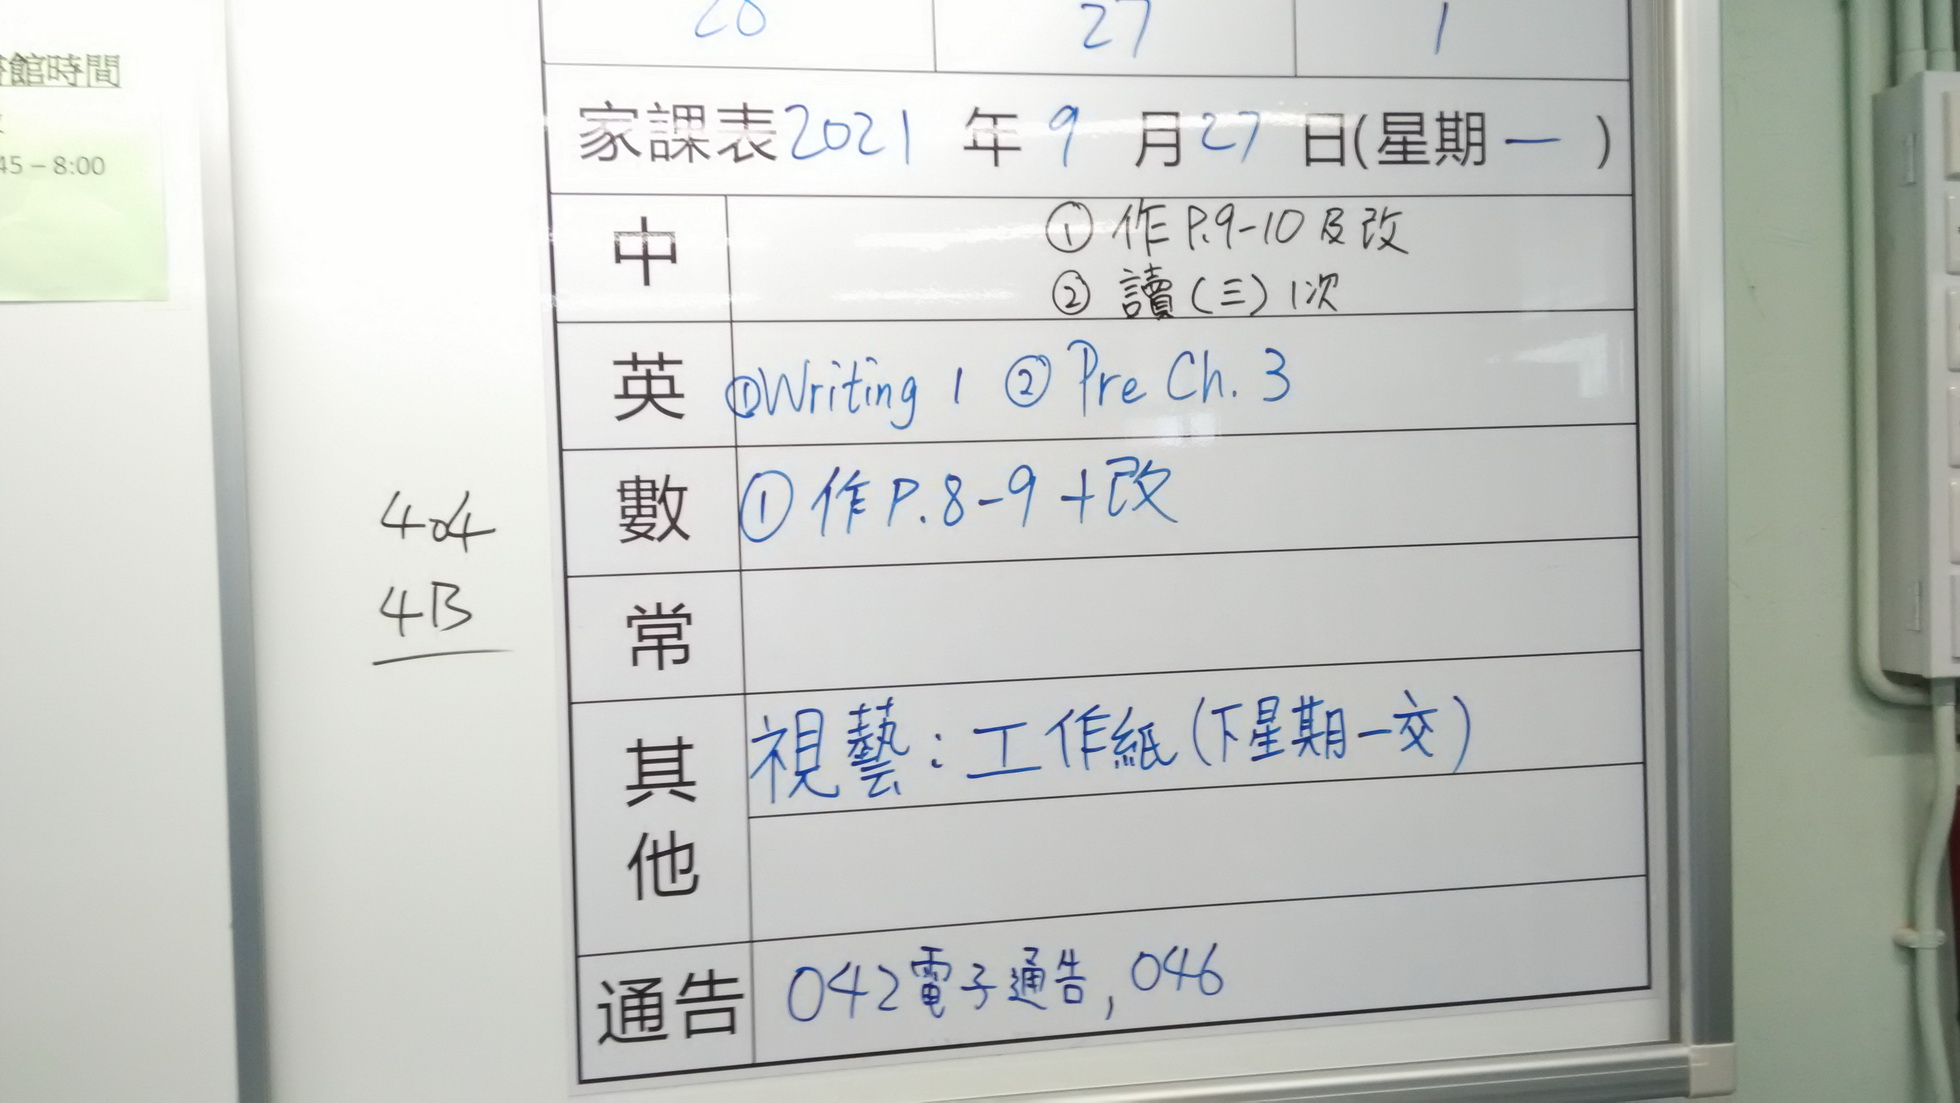 館時間
45 – 8:00
28 27 1
家課表2021 年 9 月 27 日(星期 一 )
中 ① 作 P.9-10 及改
② 讀 (三) 1次
英 ① Writing 1 ② Pre Ch. 3
數 ① 作 P. 8-9 + 改
常
其他 視藝 : 工作紙 (下星期一交)
通告 042 電子通告, 046
404
4B